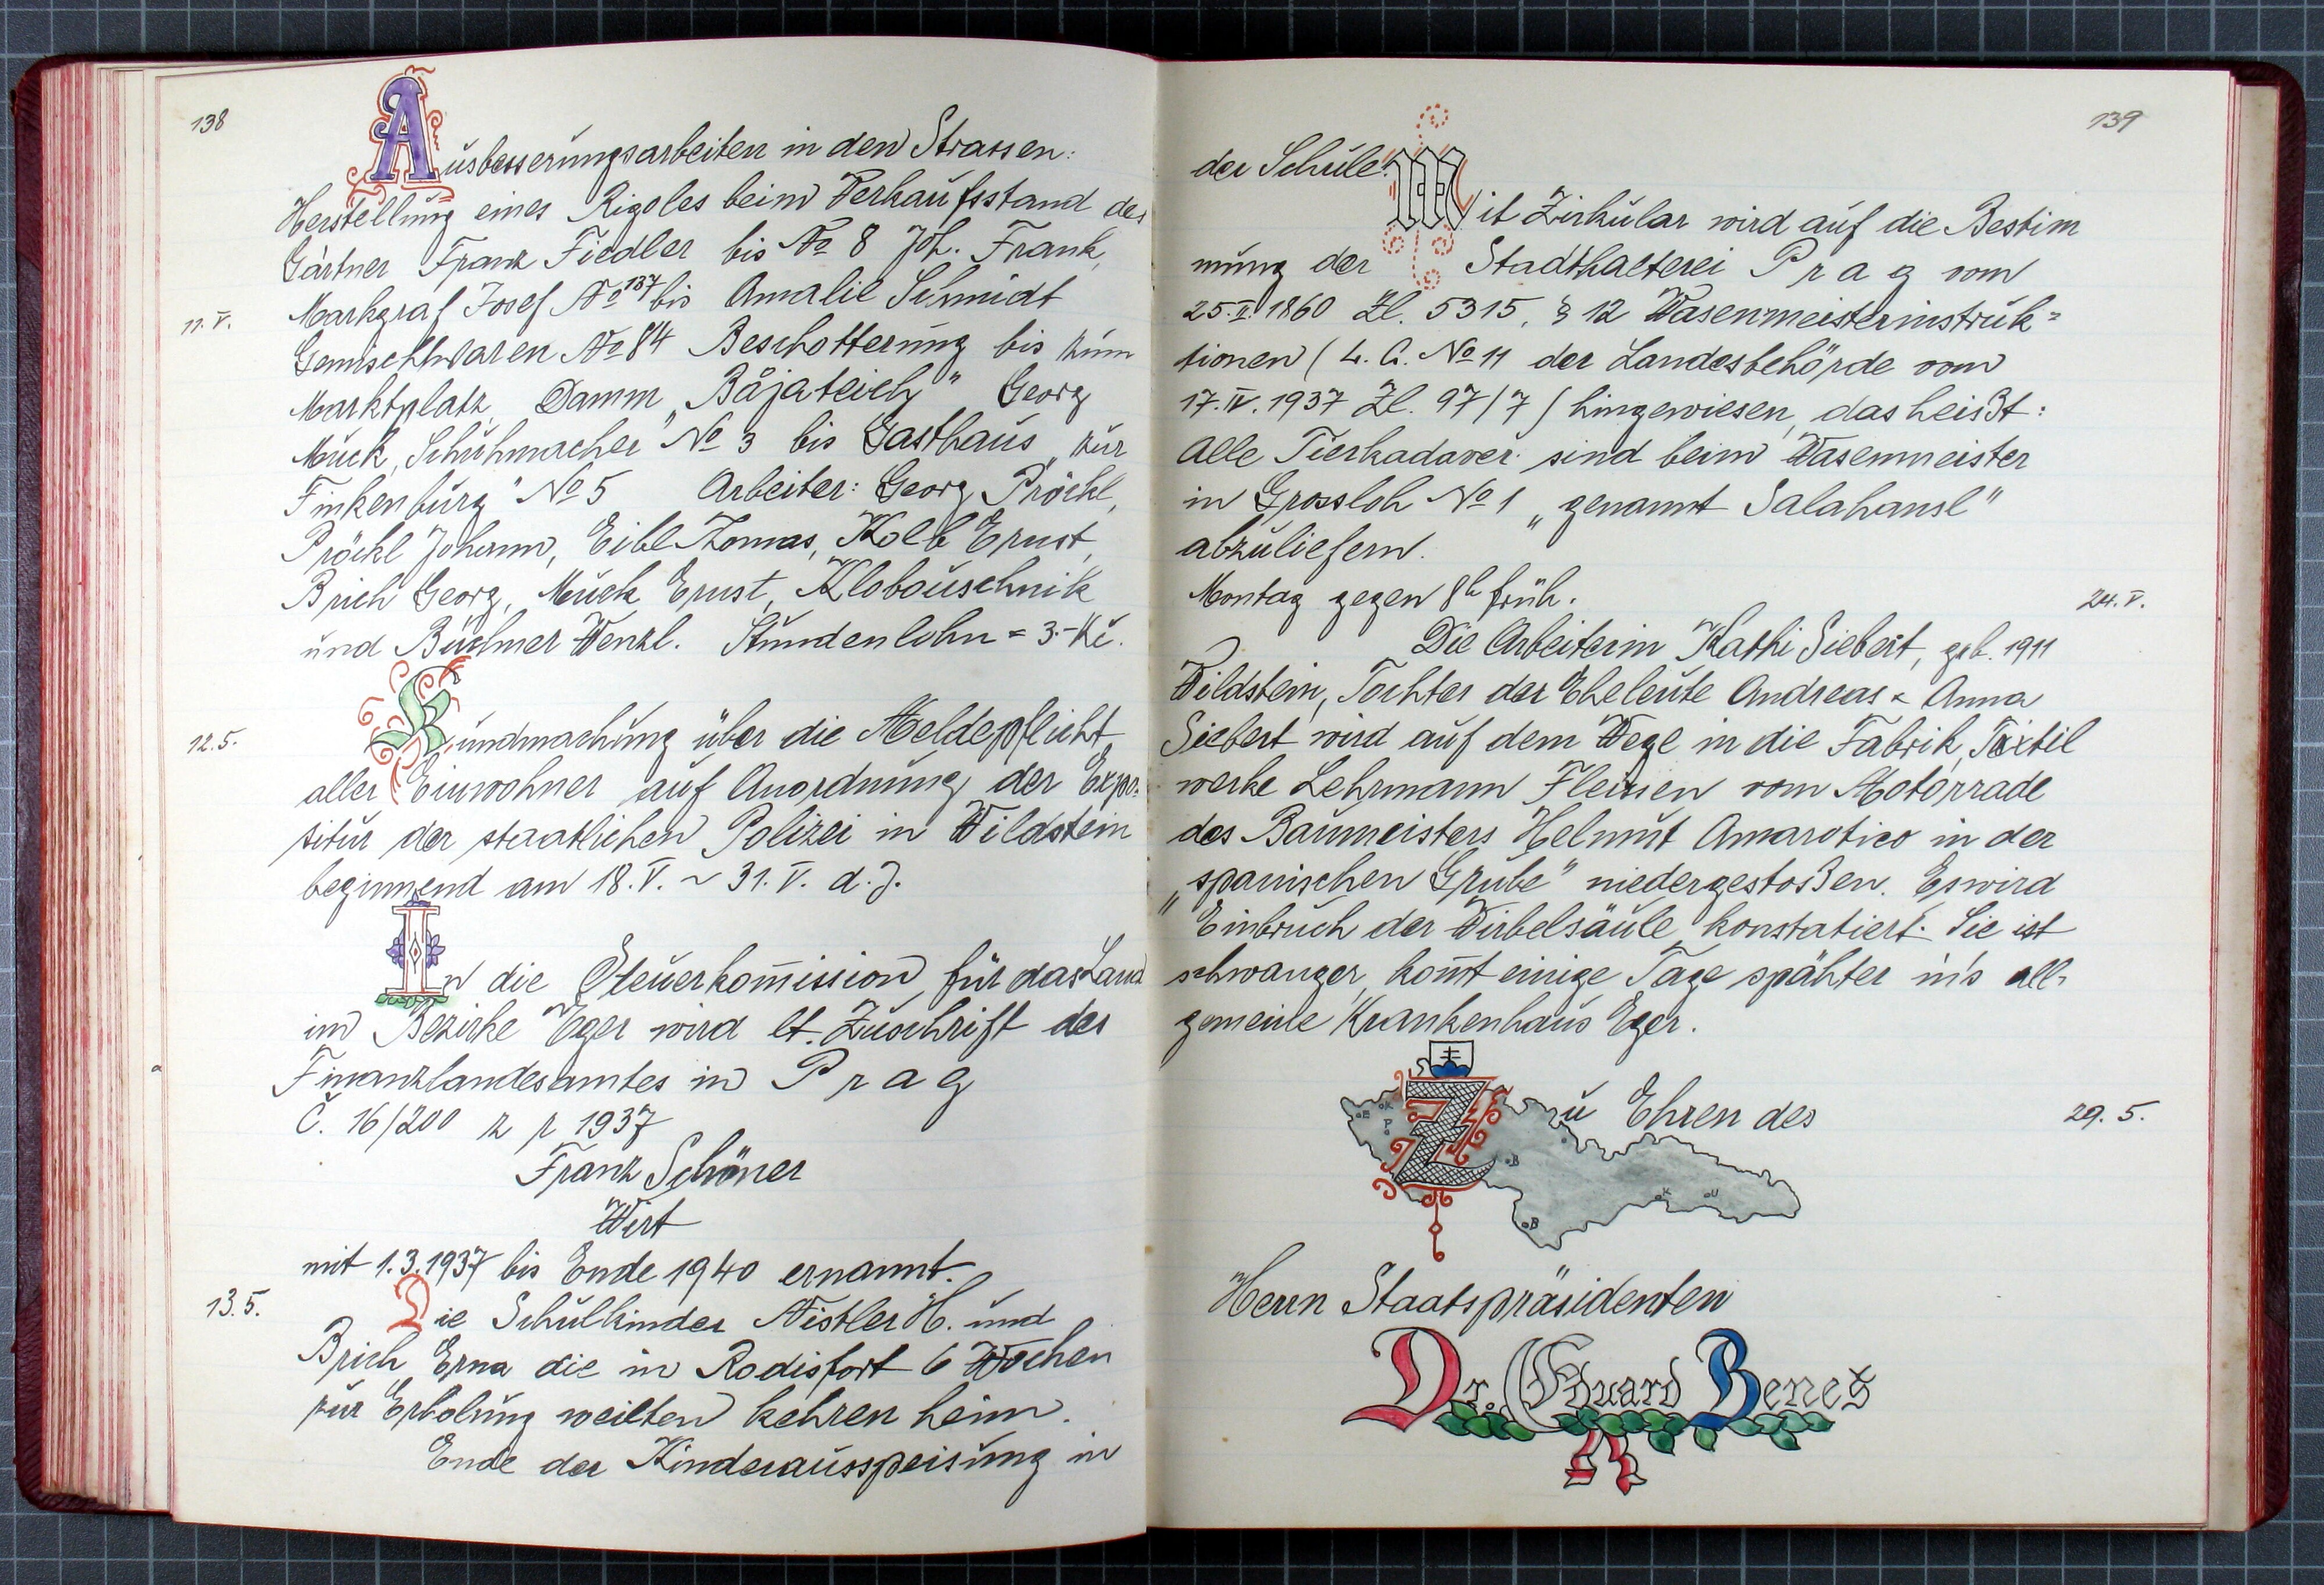 138
Ausbesserungsarbeiten in den Strassen:
Herstellung eines Rigoles beim Verkaufsstand des
Gärtner Franz Fiedler bis No 8 Joh. Frank,
Markgraf Josef No 137 bis Amalie Schmidt
11. V.
Gemischtwaren No 84 Beschotterung bis zum
Marktplatz, Damm „Båjateich" Georg
Muck, Schuhmacher No 3 bis Gasthaus „zur
Finkenburg" No 5 Arbeiter: Georg Pröckl,
Pröckl Johann, Eibl Thomas, Kolb Ernst,
Brich Georg, Muck Ernst, Klobouschnik
und Büchner Wenzl. Stundenlohn = 3.- Kč.
12.5.
Kundmachung über die Meldepflicht
aller Einwohner auf Anordnung der Expo-
situr der staatlichen Polizei in Wildstein
beginnend am 18. V. ~ 31. V. d. J.
In die Steuerkom̄ission für das Land
im Bezirke Eger wird lt. Zuschrift des
Finanzlandesamtes in Prag
Č. 16/200 z r 1937
Franz Schöner
Wirt
mit 1.3.1937 bis Ende 1940 ernannt.
13.5.
Die Schulkinder Nistler H. und
Brich Erna die in Rodisfort 6 Wochen
zur Erholung weilten kehren heim.
Ende der Kinderausspeisung in
139
der Schule!
Mit Zirkular wird auf die Bestim
mung der Stadthalterei Prag vom
25. II. 1860 Zl. 5315, § 12 Wasenmeisterinstruk=
tionen (L. A. No 11 der Landesbehörde vom
17. IV. 1937 Zl. 97/7) hingewiesen, das heißt:
Alle Tierkadaver sind beim Wasenmeister
in Grossloh No 1 „genannt Salahansl"
abzuliefern.
Montag gegen 8h früh.
24. V.
Die Arbeiterin Kathi Siebert, geb. 1911
Wildstein, Tochter der Eheleute Andreas & Anna
Siebert wird auf dem Wege in die Fabrik, Textil
werke Lehrmann Fleissen vom Motorrade
des Baumeisters Helmut Amarotico in der
„spanischen Grube" niedergestoßen. Es wird
Einbruch der Wirbelsäule konstatiert. Sie ist
schwanger, kom̄t einige Tage spähter in's all-
gemeine Krankenhaus Eger.
Zu Ehren des
29. 5.
E K
P
B
B
K U
Herrn Staatspräsidenten
Dr. Eduard Beneš